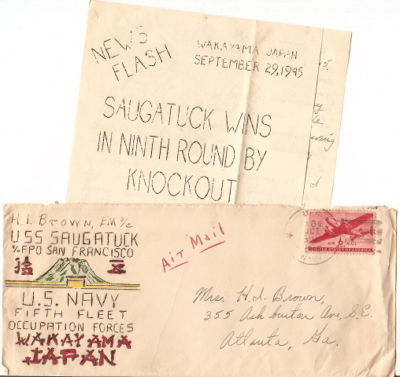 NEWS
FLASH
WAKAYAMA JAPAN
SEPTEMBER 29, 1945
SAUGATUCK WINS
IN NINTH ROUND BY
KNOCKOUT
H. I. BROWN, EM 3/c
USS SAUGATUCK
℅ FPO SAN FRANCISCO
U.S. NAVY
FIFTH FLEET
OCCUPATION FORCES
WAKAYAMA
JAPAN
Air Mail
AIR MAIL
UNITED STATES OF AMERICA
Mrs. H. I. Brown,
355 Ashburton Ave, S.E.
Atlanta, Ga.